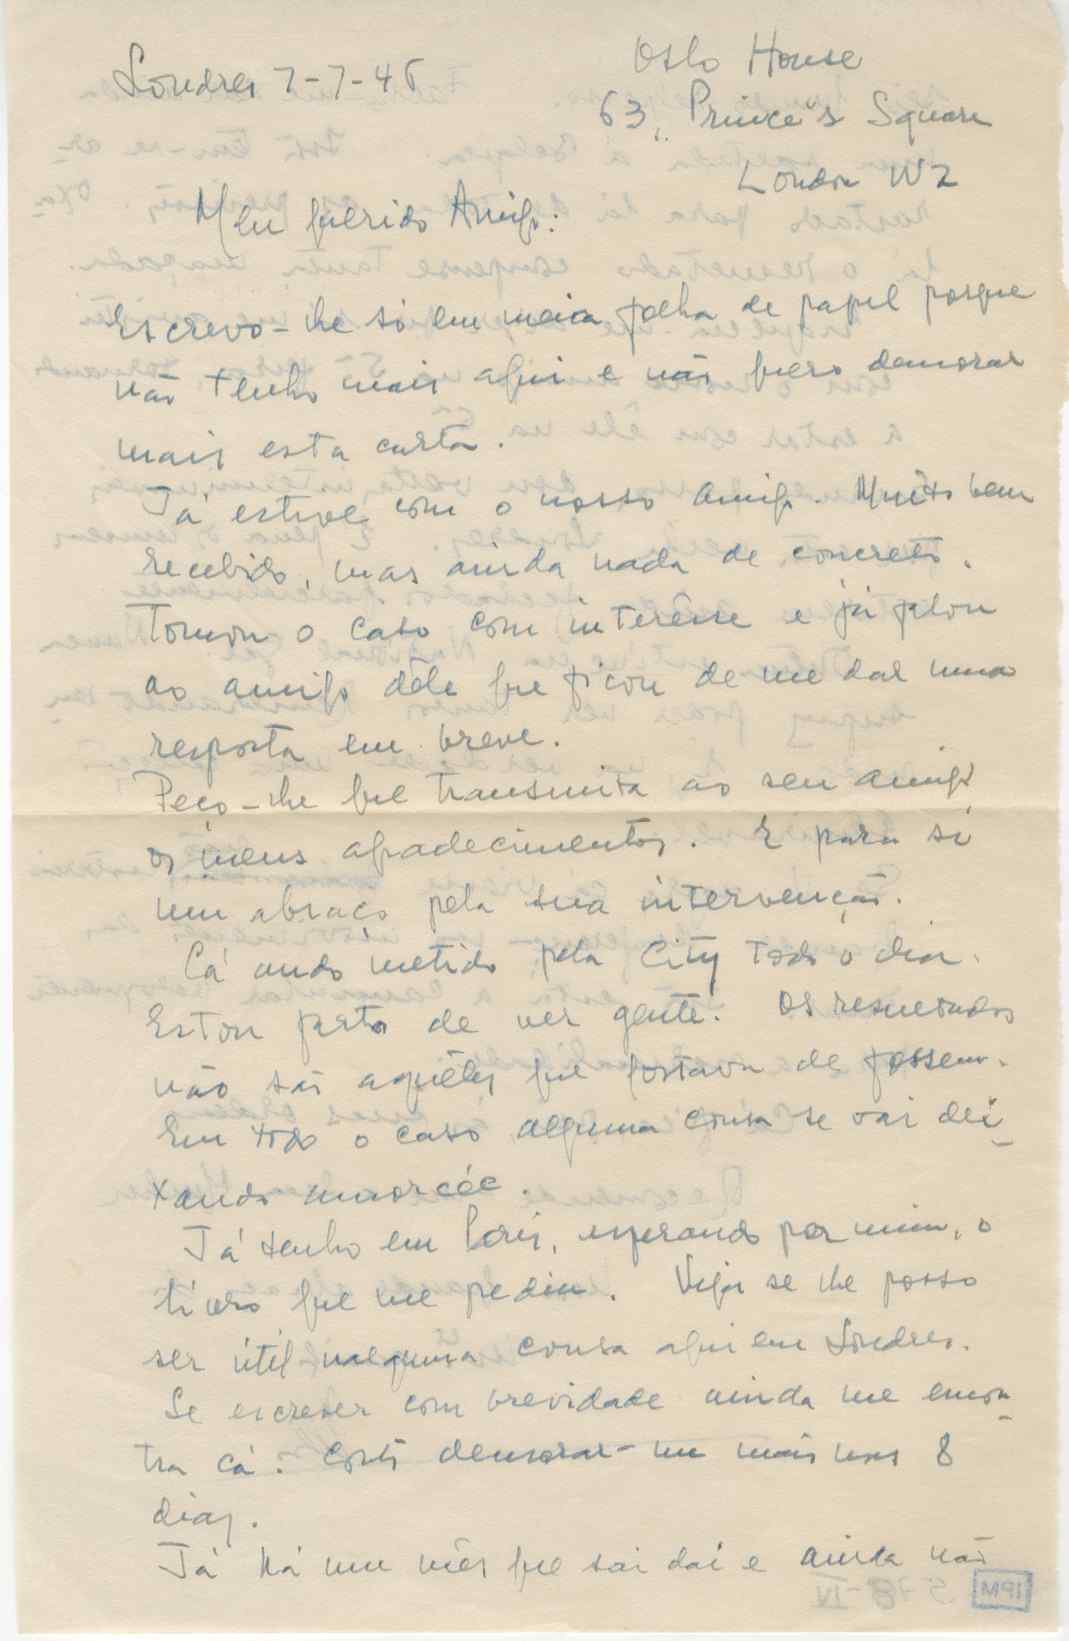 Londres 7-7-46
Oslo House
63, Prince's Square
London W2
Meu querido Amigo:
Escrevo-lhe só em meia folha de papel porque
não tenho mais aqui e não quero demorar
mais esta carta.
Já estive com o nosso amigo. Muito bem
recebido, mas ainda nada de concreto.
Tomou o caso com interêsse e já falou
ao amigo dêle que ficou de me dar uma
resposta em breve.
Peço-lhe que transmita ao seu amigo
os meus agradecimentos. E para si
um abraço pela sua intervenção.
Cá ando metido pela City todo o dia.
Estou farto de ver gente. Os resultados
não são aquêles que gostava de fossem.
Em todo o caso alguma cousa se vai dei-
xando
Já tenho em Paris, esperando por mim, o
livro que me pediu. Veja se lhe posso
ser útil nalguma cousa aqui em Londres.
Se escrever com brevidade ainda me encon-
tra cá. Conto demorar-me mais uns 8
dias.
Já há um mês que saí daí e ainda não
IPM